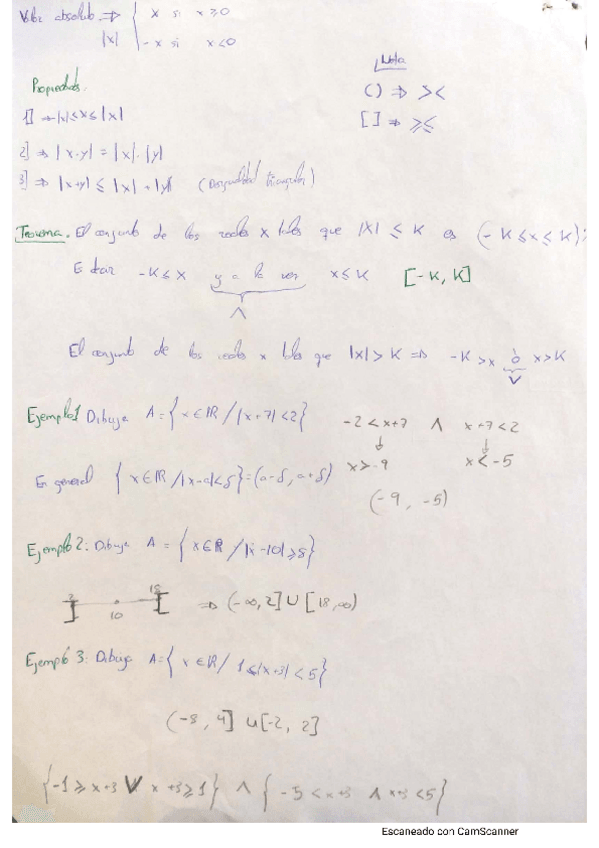 Valor absoluto ⇒ { x si x ≥ 0
|x| { -x si x < 0
Nota
( ) ⇒ > <
[ ] ⇒ ≥ ≤
Propiedades.
1] ⇒ -|x| ≤ x ≤ |x|
2] ⇒ |x·y| = |x|·|y|
3] ⇒ |x+y| ≤ |x| + |y| (Desigualdad triangular)
Teorema. El conjunto de los reales x tales que |x| ≤ K es (-K ≤ x ≤ K);
Es decir -K ≤ x y a la vez x ≤ K [-K, K]
∧
El conjunto de los reales x tales que |x| > K ⇒ -K > x ó x > K
∨
Ejemplo 1 Dibuja A = { x ∈ ℝ / |x+7| < 2 } -2 < x+7 ∧ x+7 < 2
↓ ↓
x > -9 x < -5
En general { x ∈ ℝ / |x-a| < δ } = (a-δ, a+δ)
(-9, -5)
Ejemplo 2: Dibuja A = { x ∈ ℝ / |x-10| ≥ 8 }
2 18
] 10 [ ⇒ (-∞, 2] ∪ [18, ∞)
Ejemplo 3: Dibuja A = { x ∈ ℝ / 1 ≤ |x+3| < 5 }
(-8, 4] ∪ [-2, 2]
{ -1 ≥ x+3 ∨ x+3 ≥ 1 } ∧ { -5 < x+3 ∧ x+3 < 5 }
Escaneado con CamScanner